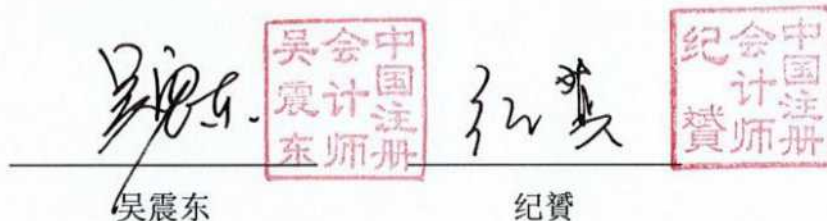 吴震东
中国注册
会计师
吴震东
中国注册
会计师
纪赟
吴震东
纪赟